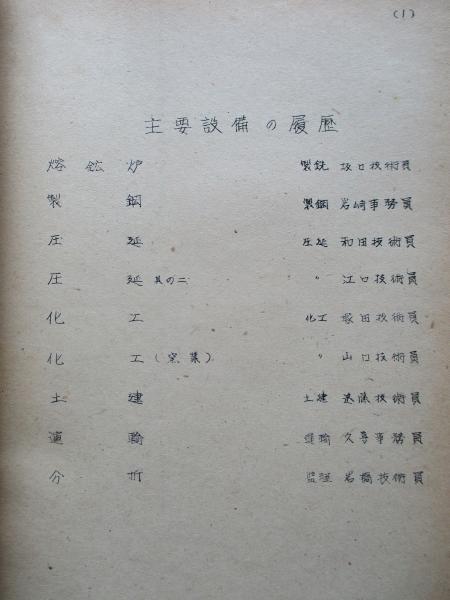 (1)
主要設備の履歴
熔鉱炉 製銑 坂口技術員
製鋼 製鋼 岩崎事務員
圧延 圧延 和田技術員
圧延 其の二 〃 江口技術員
化工 化工 塚田技術員
化工(窯業) 〃 山口技術員
土建 土建 遠藤技術員
運輸 運輸 久喜事務員
分析 岩橋技術員